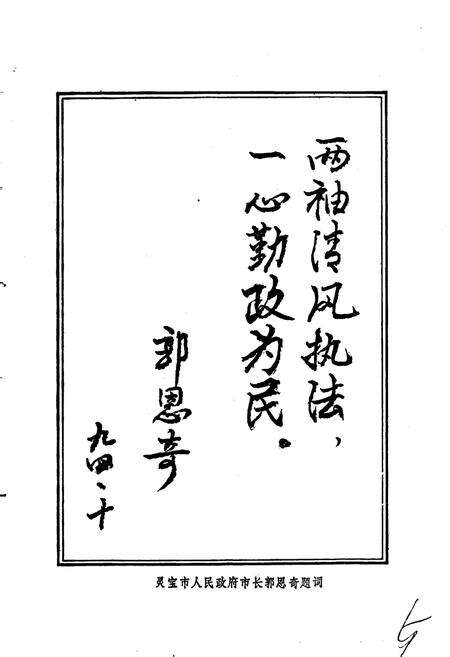 两袖清风执法，
一心勤政为民。
郭恩奇
九四、十
灵宝市人民政府市长郭恩奇题词